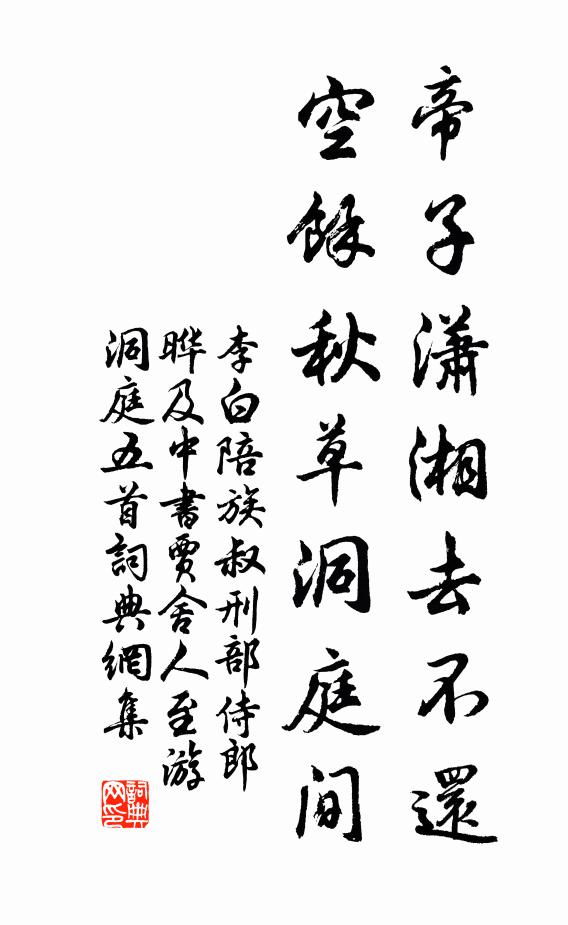 帝子瀟湘去不還
空餘秋草洞庭间
李白陪族叔刑部侍郎
晔及中書賈舍人至游
洞庭五首詞典網集
詞典
网印